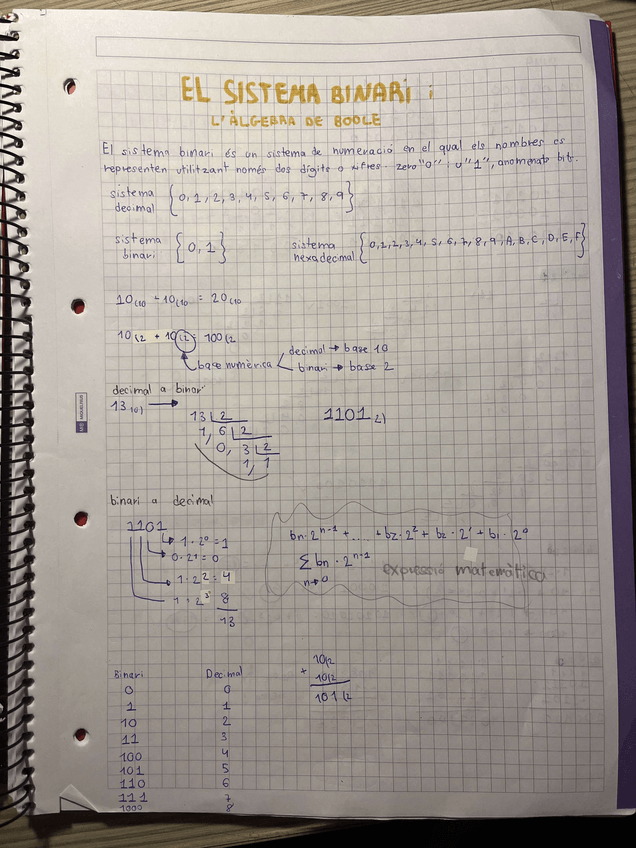 EL SISTEMA BINARI i
L'ÀLGEBRA DE BOOLE
El sistema binari és un sistema de numeració en el qual els nombres es
representen utilitzant només dos dígits o xifres zero "0" i u "1", anomenats bits.
sistema decimal {0,1,2,3,4,5,6,7,8,9}
sistema binari {0,1} sistema hexadecimal {0,1,2,3,4,5,6,7,8,9,A,B,C,D,E,F}
10(10 + 10(10 = 20(10
10(2 + 10(2 = 100(2
base numèrica decimal → base 10
binari → base 2
decimal a binari
13 10) → 1101 2)
13 | 2
1, 6 | 2
0, 3 | 2
1, 1
binari a decimal
1101
1·2⁰ = 1
0·2¹ = 0
1·2² = 4
1·2³ 8
13
bn·2ⁿ⁻¹ + .... + b2·2² + b2·2¹ + b1·2⁰
∑ bn·2ⁿ⁻¹
n→0
expressió matemàtica
Binari Decimal
0 0
1 1
10 2
11 3
100 4
101 5
110 6
111 7
1000 8
10(2
+ 10(2
101(2